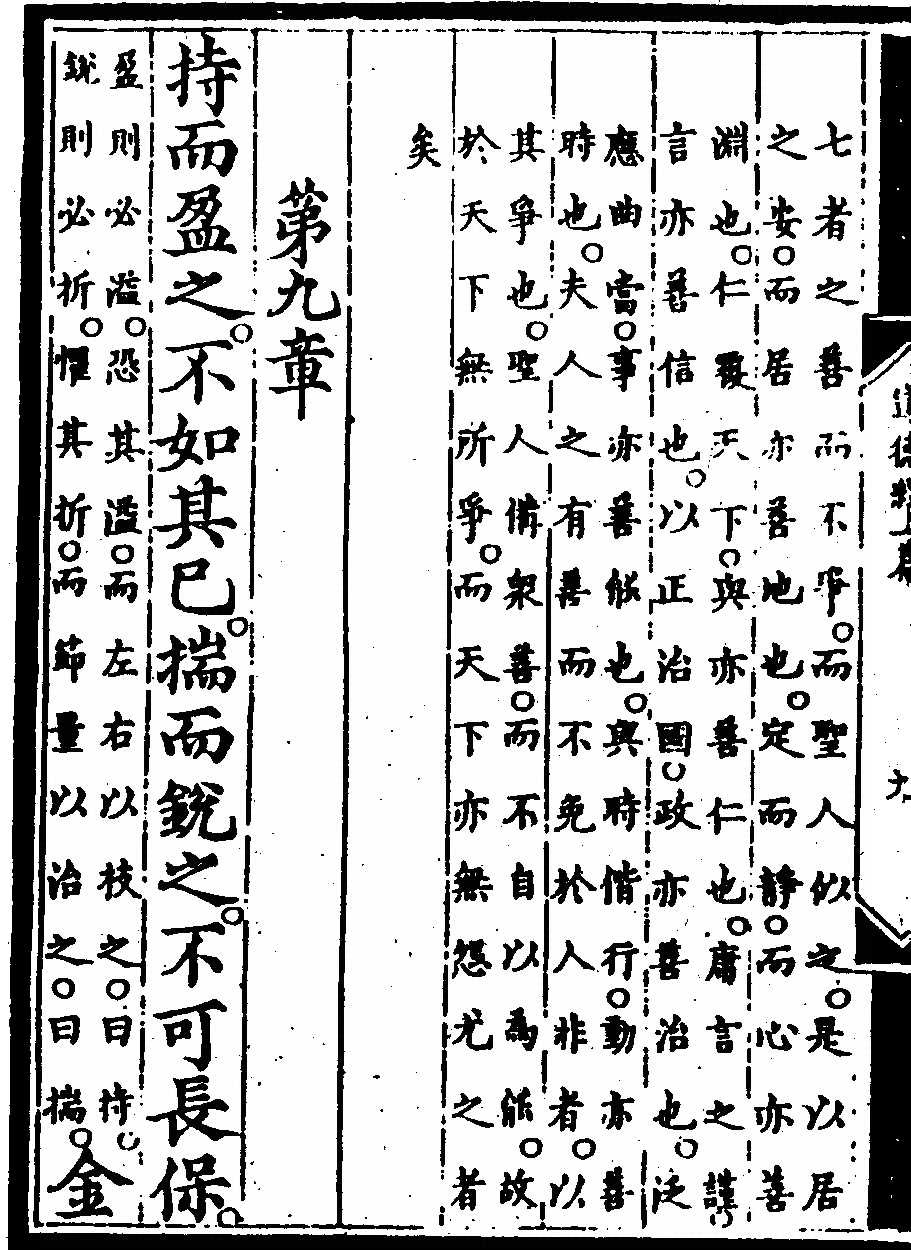 七者之善而不爭。而聖人似之。是以居
之安。而居亦善地也。定而靜。而心亦善
淵也。仁覆天下。與亦善仁也。庸言之謹
言亦善信也。以正治國。政亦善治也。泛
應曲當。事亦善能也。與時偕行。動亦善
時也。夫人之有善而不免於人非者。以
其爭也。聖人備衆善。而不自以為能。故
於天下無所爭。而天下亦無怨尤之者
矣
第九章
持而盈之。不如其已。揣而銳之。不可長保。
盈則必溢。恐其溢。而左右以枝之。曰持。
銳則必折。懼其折。而節量以治之。曰揣。
金